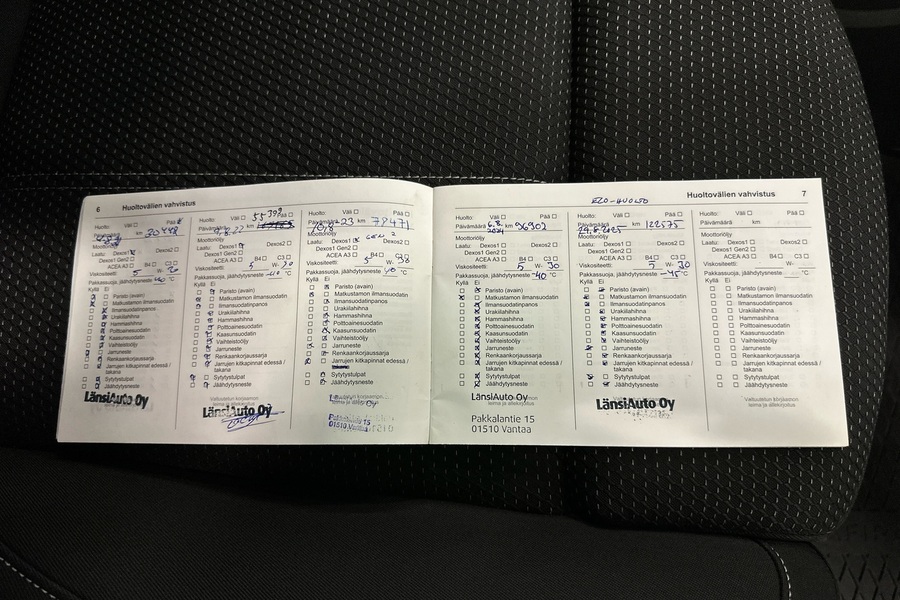 6 Huoltovälien vahvistus
Huolto: Väli Pää
km 30448
Moottoriöljy
Laatu: Dexos1 Dexos2
Dexos1 Gen2
ACEA A3 B4 C3
Viskositeetti: 5 W-
Pakkassuoja, jäähdytysneste -40 °C
Kyllä Ei
Paristo (avain)
Matkustamon ilmansuodatin
Ilmansuodatinpanos
Urakiilahihna
Hammashihna
Polttoainesuodatin
Kaasunsuodatin
Vaihteistoöljy
Jarruneste
Renkaankorjaussarja
Jarrujen kitkapinnat edessä /
takana
Sytytystulpat
Jäähdytysneste
LänsiAuto Oy
Huolto: Väli 55392 Pää
Päivämäärä km
Moottoriöljy
Laatu: Dexos1 Dexos2
Dexos1 Gen2
ACEA A3 B4 C3
Viskositeetti: 5 W-
Pakkassuoja, jäähdytysneste -40 °C
Kyllä Ei
Paristo (avain)
Matkustamon ilmansuodatin
Ilmansuodatinpanos
Urakiilahihna
Hammashihna
Polttoainesuodatin
Kaasunsuodatin
Vaihteistoöljy
Jarruneste
Renkaankorjaussarja
Jarrujen kitkapinnat edessä /
takana
Sytytystulpat
Jäähdytysneste
Valtuutetun korjaamon
LänsiAuto Oy
Huolto: Väli Pää
Päivämäärä 10.8 23 km 79471
Moottoriöljy
Laatu: Dexos1 GEN 2 Dexos2
Dexos1 Gen2
ACEA A3 B4 C3
Viskositeetti: 5 W-
Pakkassuoja, jäähdytysneste 40 °C
Kyllä Ei
Paristo (avain)
Matkustamon ilmansuodatin
Ilmansuodatinpanos
Urakiilahihna
Hammashihna
Polttoainesuodatin
Kaasunsuodatin
Vaihteistoöljy
Jarruneste
Renkaankorjaussarja
Jarrujen kitkapinnat edessä /
takana
Sytytystulpat
Jäähdytysneste
Valtuutetun korjaamon
leima ja allekirjoitus
01510 Vantaa
Huoltovälien vahvistus 7
Huolto: Väli Pää
Päivämäärä 6.8. 2024 km 96302
Moottoriöljy
Laatu: Dexos1 Dexos2
Dexos1 Gen2
ACEA A3 B4 C3
Viskositeetti: 5 W- 30
Pakkassuoja, jäähdytysneste -40 °C
Kyllä Ei
Paristo (avain)
Matkustamon ilmansuodatin
Ilmansuodatinpanos
Urakiilahihna
Hammashihna
Polttoainesuodatin
Kaasunsuodatin
Vaihteistoöljy
Jarruneste
Renkaankorjaussarja
Jarrujen kitkapinnat edessä /
takana
Sytytystulpat
Jäähdytysneste
LänsiAuto Oy
Pakkalantie 15
01510 Vantaa
Huolto: Väli Pää
Päivämäärä km 122575
29.8.2025
Moottoriöljy
Laatu: Dexos1 Dexos2
Dexos1 Gen2
ACEA A3 B4 C3
Viskositeetti: 5 W- 30
Pakkassuoja, jäähdytysneste -45 °C
Kyllä Ei
Paristo (avain)
Matkustamon ilmansuodatin
Ilmansuodatinpanos
Urakiilahihna
Hammashihna
Polttoainesuodatin
Kaasunsuodatin
Vaihteistoöljy
Jarruneste
Renkaankorjaussarja
Jarrujen kitkapinnat edessä /
takana
Sytytystulpat
Jäähdytysneste
LänsiAuto Oy
Huolto: Väli Pää
Päivämäärä km
Moottoriöljy
Laatu: Dexos1 Dexos2
Dexos1 Gen2
ACEA A3 B4 C3
Viskositeetti: W-
Pakkassuoja, jäähdytysneste °C
Kyllä Ei
Paristo (avain)
Matkustamon ilmansuodatin
Ilmansuodatinpanos
Urakiilahihna
Hammashihna
Polttoainesuodatin
Kaasunsuodatin
Vaihteistoöljy
Jarruneste
Renkaankorjaussarja
Jarrujen kitkapinnat edessä /
takana
Sytytystulpat
Jäähdytysneste
Valtuutetun korjaamon
leima ja allekirjoitus